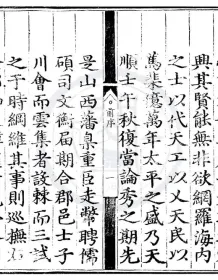 興其賢能無非欲綱羅海內
之士以代天工以乂天民以
篤棐億萬年太平之盛乃天
順壬午秋復當論秀之期先
前序
一
是山西藩臬重臣走幣聘儒
碩司文衡屆期合郡邑士子
川會而雲集者設棘而三試
之于時綱維其事則巡撫